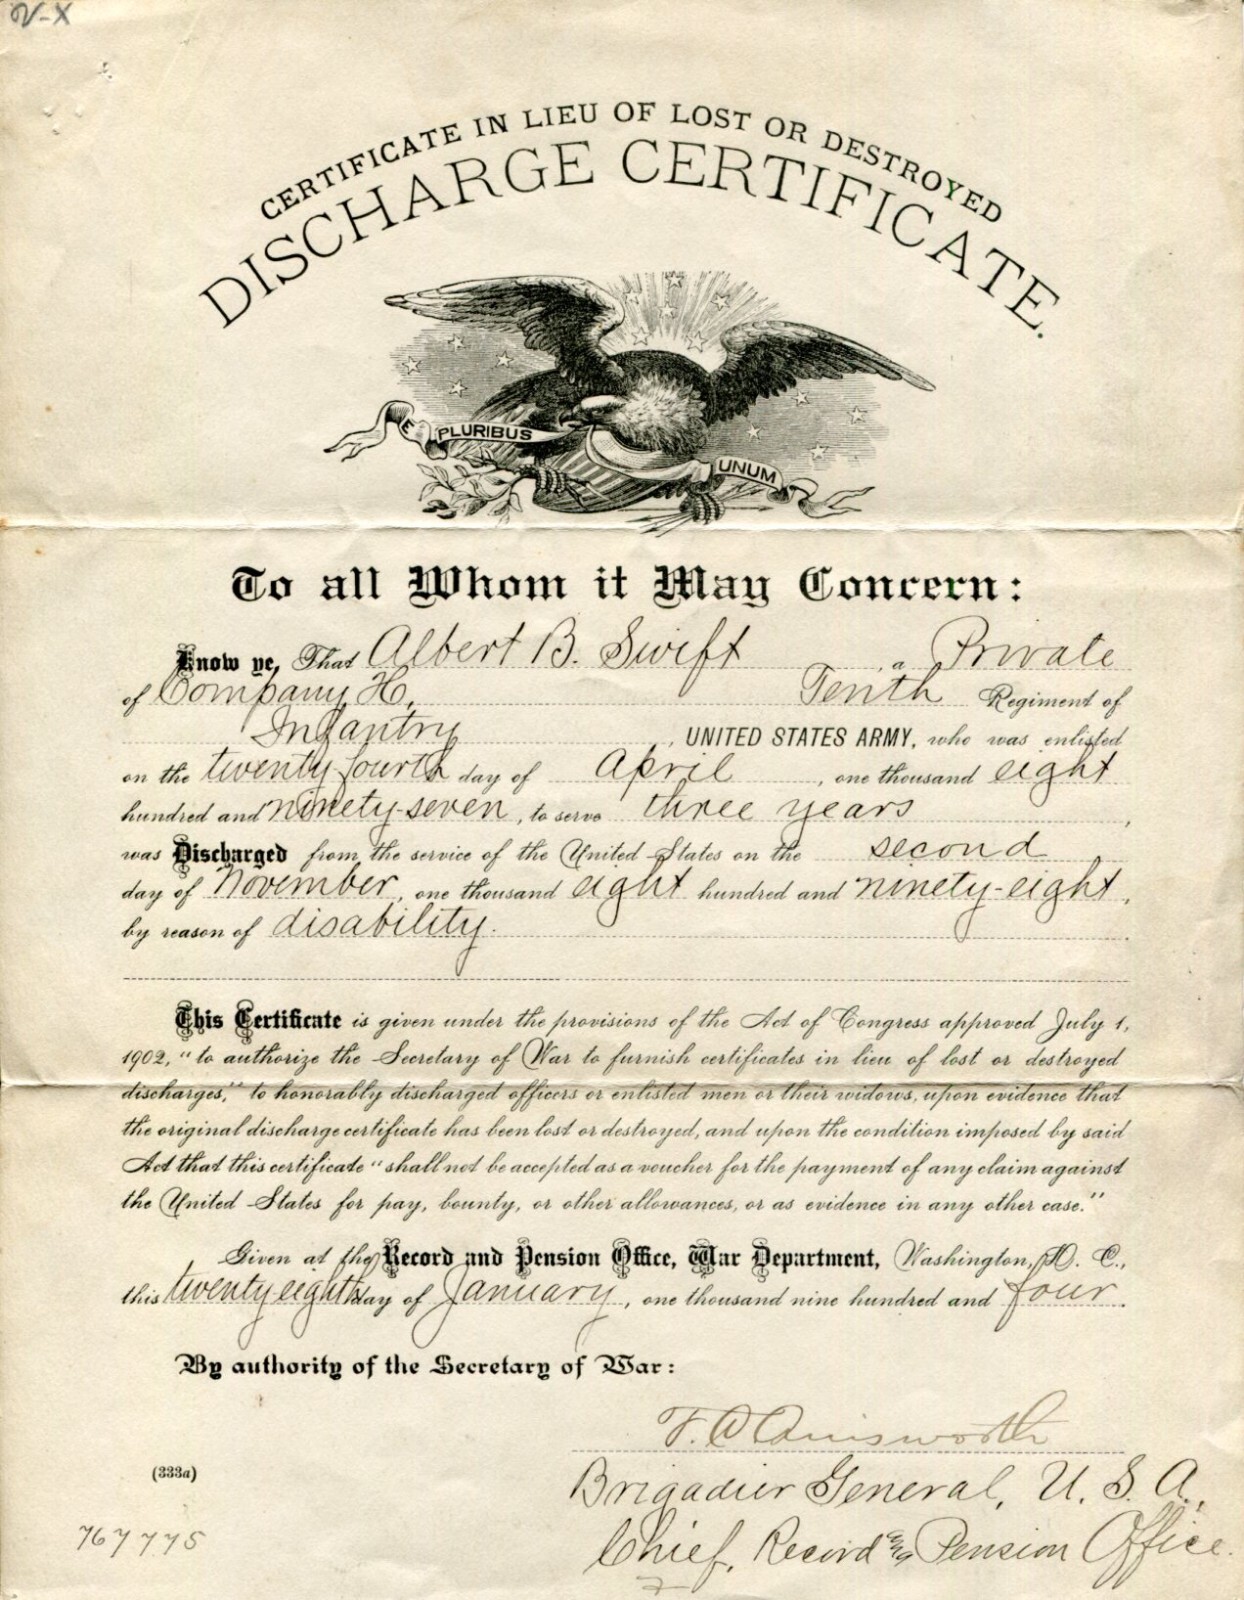 V-X
CERTIFICATE IN LIEU OF LOST OR DESTROYED
DISCHARGE CERTIFICATE.
E PLURIBUS UNUM
To all Whom it May Concern:
Know ye, That Albert B. Swift, a Private
of Company H, Tenth Regiment of
Infantry, UNITED STATES ARMY, who was enlisted
on the twenty fourth day of April, one thousand eight
hundred and ninety-seven, to serve three years,
was Discharged from the service of the United States on the second
day of November, one thousand eight hundred and ninety-eight,
by reason of disability.
This Certificate is given under the provisions of the Act of Congress approved July 1,
1902, "to authorize the Secretary of War to furnish certificates in lieu of lost or destroyed
discharges," to honorably discharged officers or enlisted men or their widows, upon evidence that
the original discharge certificate has been lost or destroyed, and upon the condition imposed by said
Act that this certificate "shall not be accepted as a voucher for the payment of any claim against
the United States for pay, bounty, or other allowances, or as evidence in any other case."
Given at the Record and Pension Office, War Department, Washington, D. C.,
this twenty eighth day of January, one thousand nine hundred and four.
By authority of the Secretary of War:
F. C. Ainsworth
(333a)
Brigadier General, U. S. A.,
767775
Chief, Record and Pension Office.